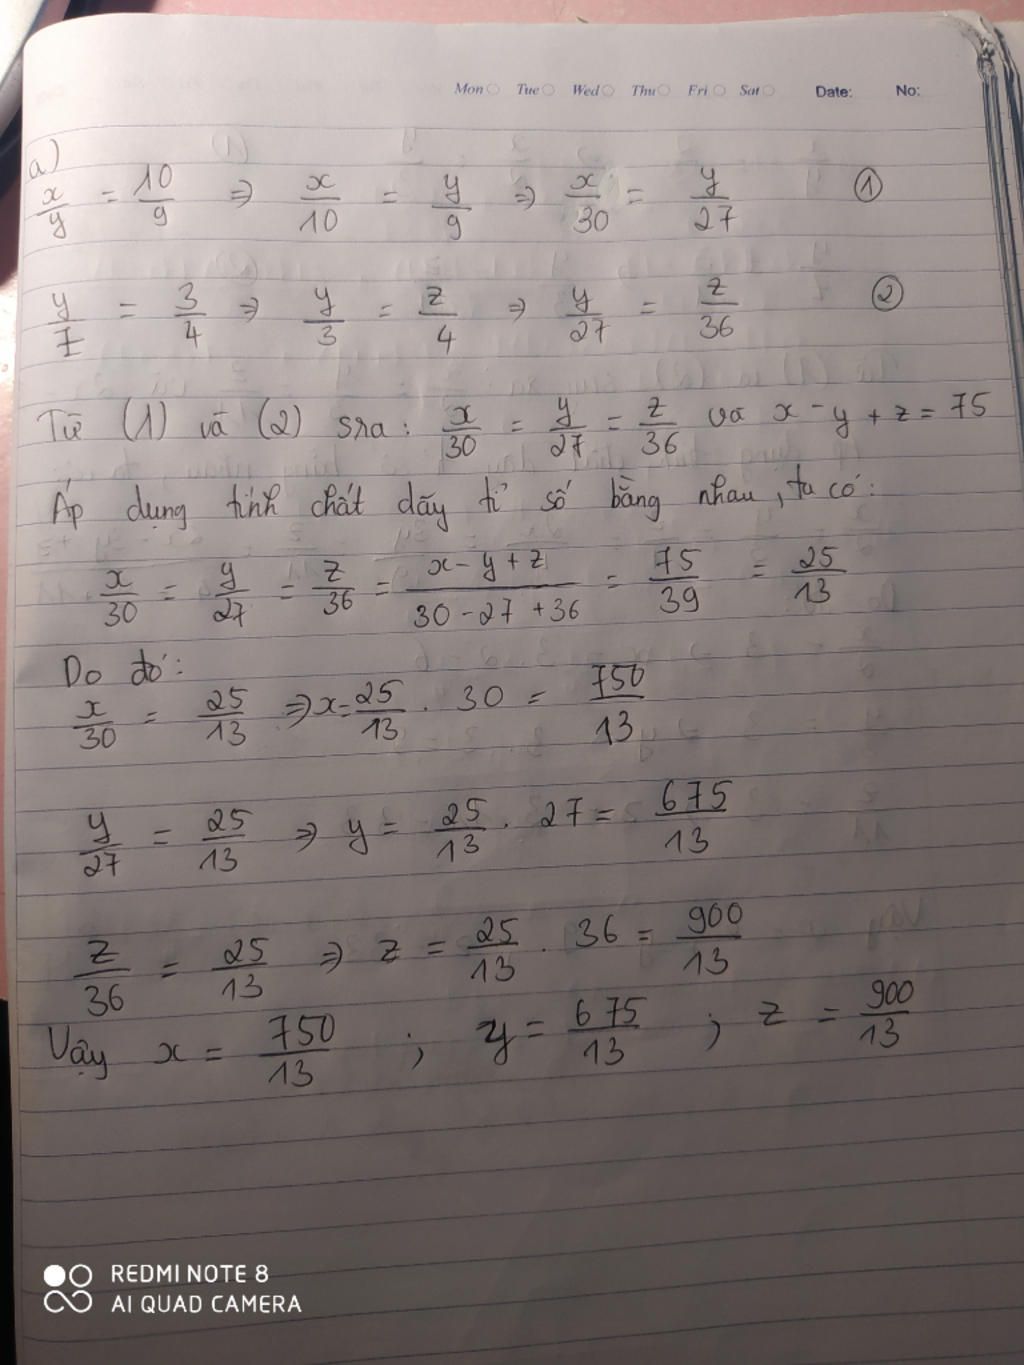 Mon Tue Wed Thu Fri Sat Date: No:
a)
x/y = 10/9 ⇒ x/10 = y/9 ⇒ x/30 = y/27 ①
y/z = 3/4 ⇒ y/3 = z/4 ⇒ y/27 = z/36 ②
Từ (1) và (2) sra: x/30 = y/27 = z/36 và x - y + z = 75
Áp dụng tính chất dãy tỉ số bằng nhau, ta có:
x/30 = y/27 = z/36 = x - y + z/30 - 27 + 36 = 75/39 = 25/13
Do đó:
x/30 = 25/13 ⇒ x = 25/13 . 30 = 750/13
y/27 = 25/13 ⇒ y = 25/13 . 27 = 675/13
z/36 = 25/13 ⇒ z = 25/13 . 36 = 900/13
Vậy x = 750/13 ; y = 675/13 ; z = 900/13
REDMI NOTE 8
AI QUAD CAMERA